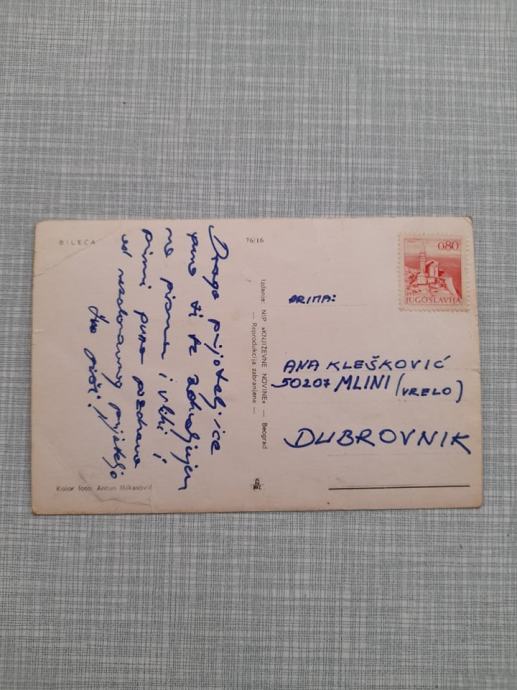 BILEĆA
76/16
Draga prijateljice
puno ti se zahvaljujem
na pismu i
primi puno pozdrava
od nezaboravnog prijatelja
Kolor foto: Antun Miletović
Izdanje: NIP »KNJIŽEVNE NOVINE« — Beograd
— Reprodukcija zabranjena —
0,80
JUGOSLAVIJA
PRIMA:
ANA KLEŠKOVIĆ
50207 MLINI (VRELO)
DUBROVNIK